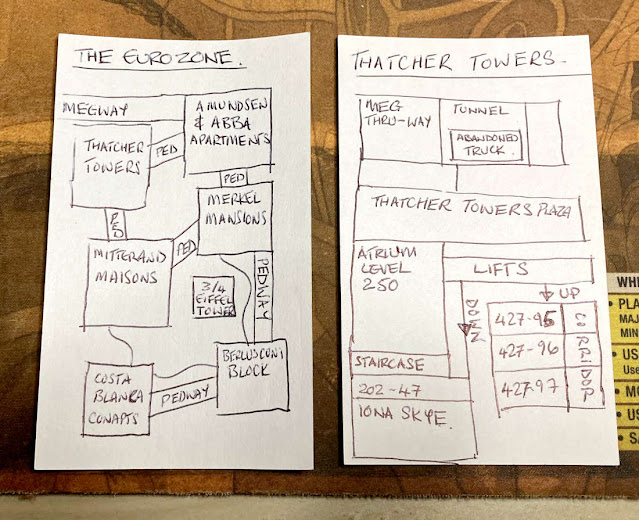 THE EUROZONE.
MEGWAY
AMUNDSEN
& ABBA
APARTMENTS
THATCHER
TOWERS
PED
PED
MERKEL
MANSIONS
PED
MITTERAND
MAISONS
PED
PEDWAY
3/4
EIFFEL
TOWER
BERLUSCONI
BLOCK
COSTA
BLANCA
CONAPTS
PEDWAY
THATCHER TOWERS.
MEG
THRU-WAY
TUNNEL
ABANDONED
TRUCK.
THATCHER TOWERS PLAZA
ATRIUM
LEVEL
250
LIFTS
UP
DOWN
427-95
427-96
427-97
CORRIDOR
STAIRCASE
202-47
IONA SKYE.
WHI
• PLA
MAJ
MIN
• US
Use
• MO
• US
• SA